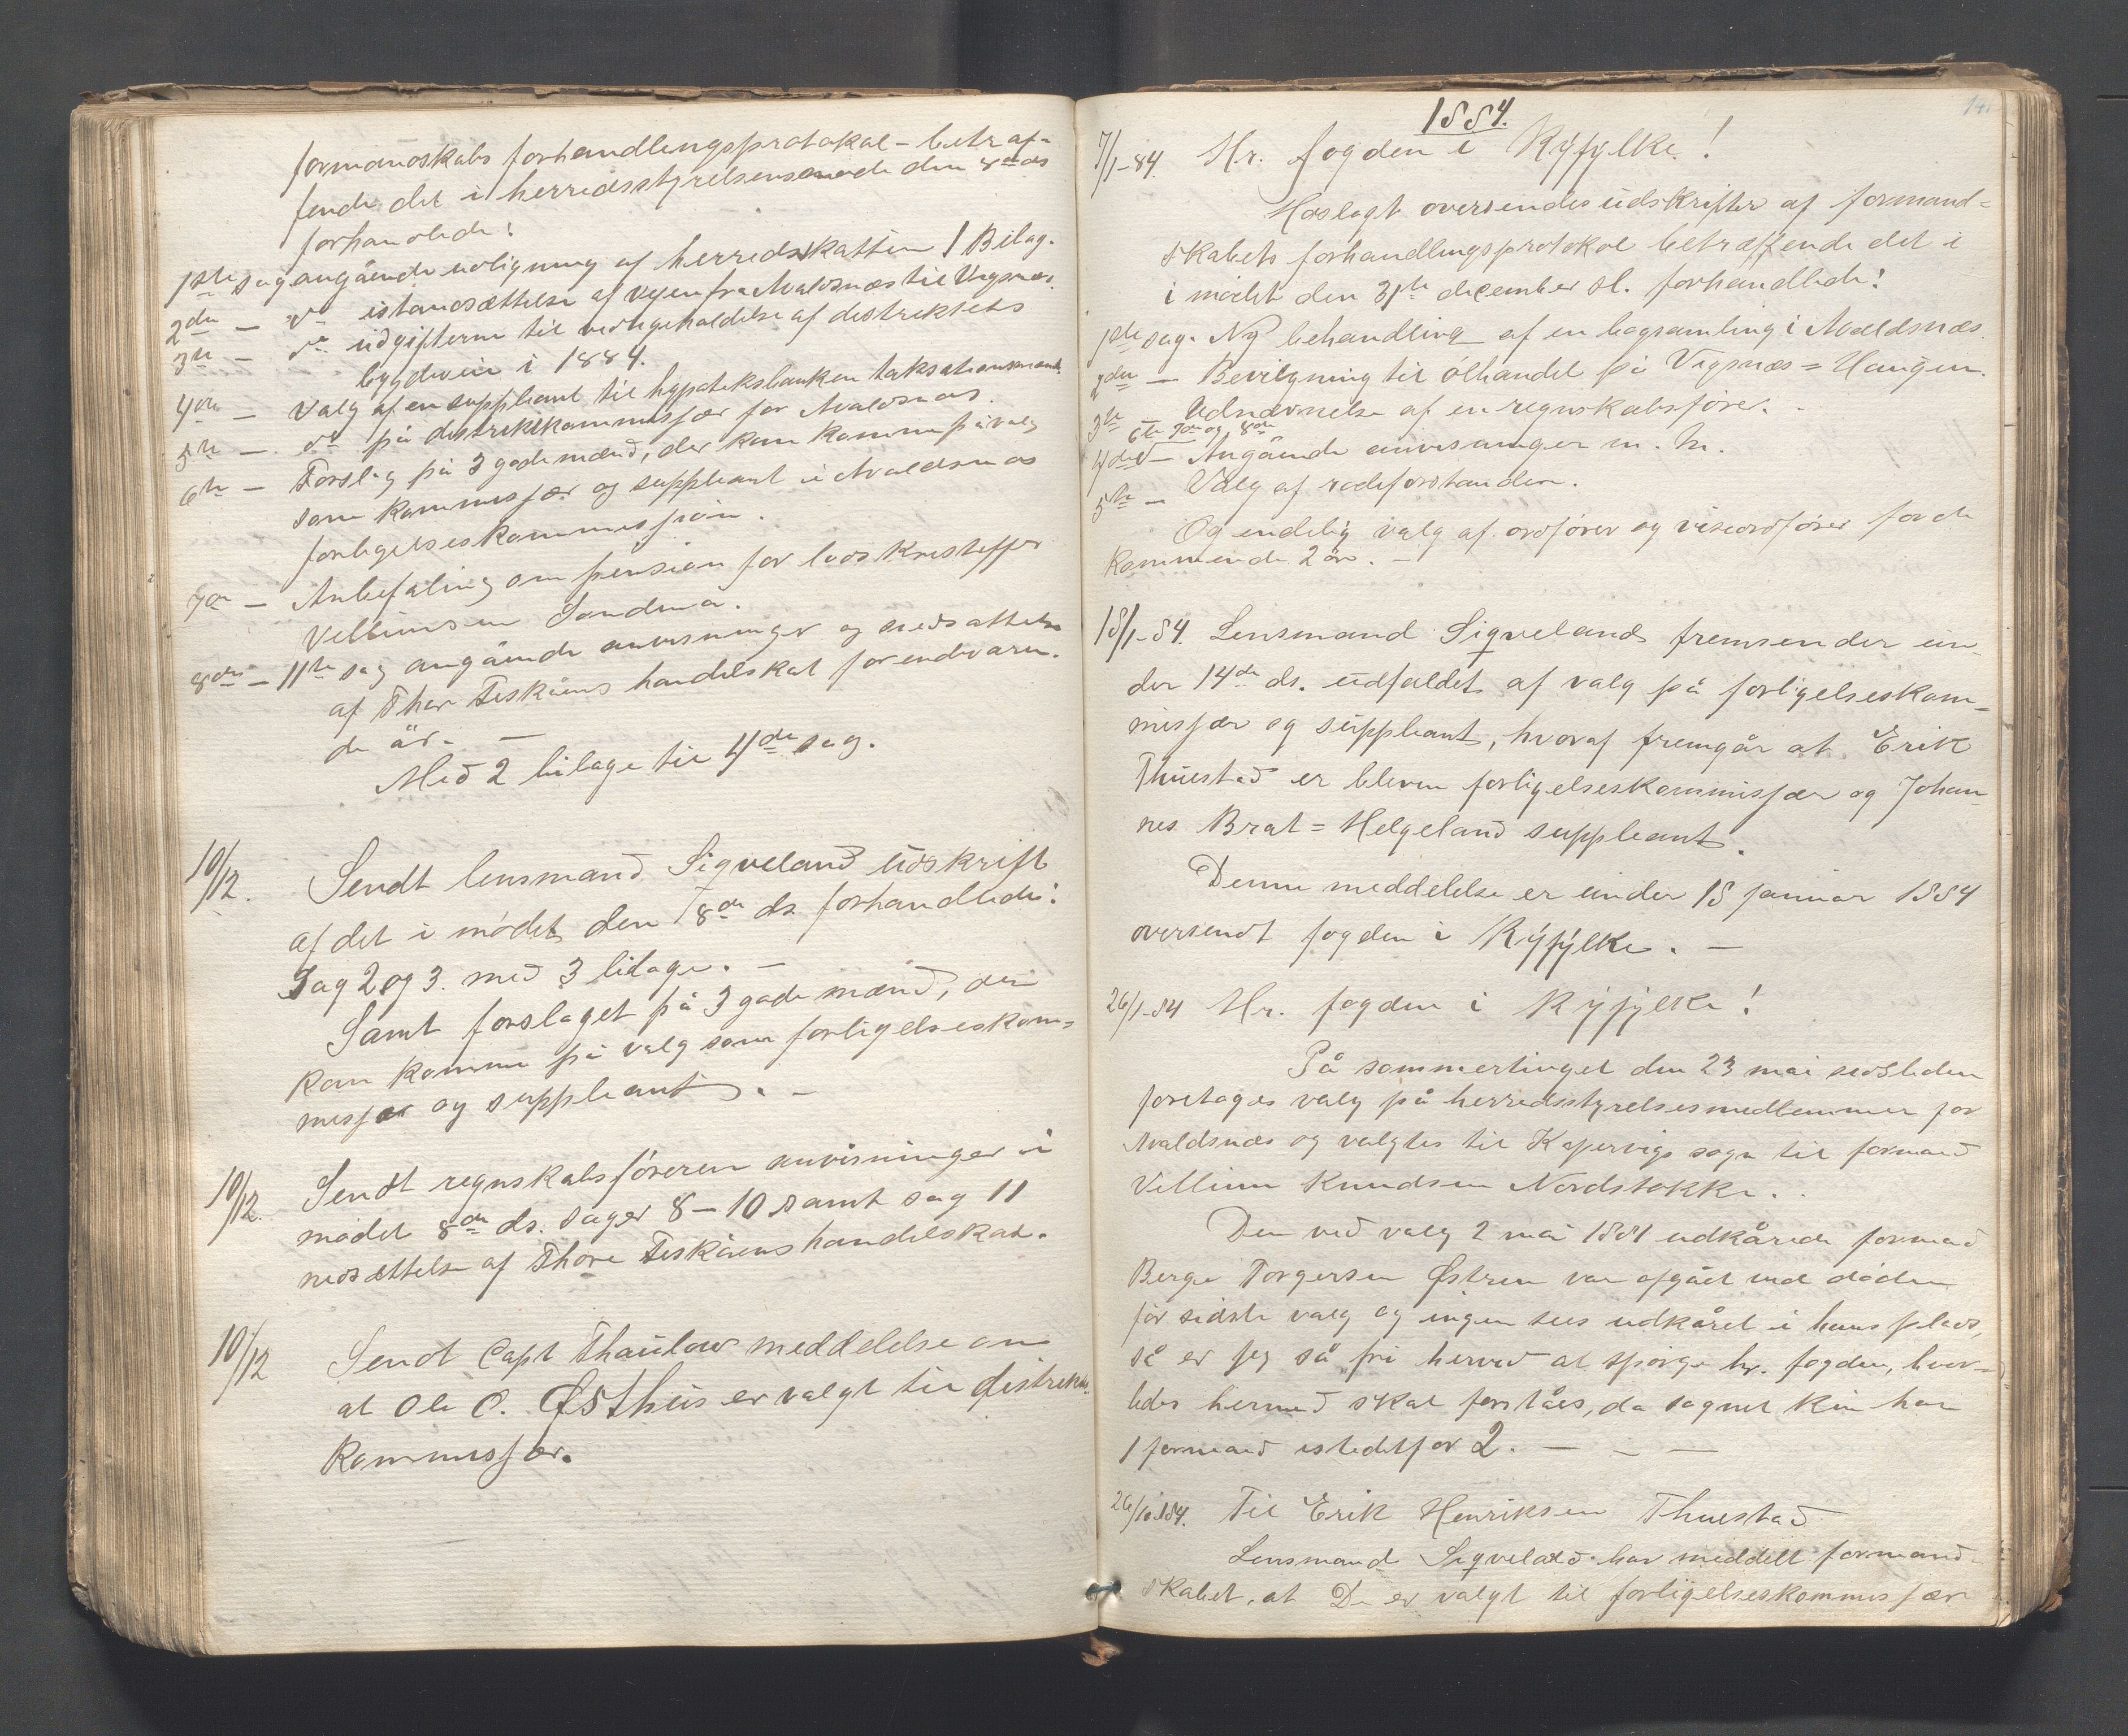 formandskabs forhandlingsprotokol - betræf-
fende det i herredsstyrelsens møde den 8de ds
forhandlede:
1ste sag angående udligning af herredsskatten 1 Bilag.
2den - do istandsættelse af vejen fra Avaldsnæs til Vigsnæs.
3die - do udgifterne til vedligeholdelse af distriktets
bygdeveie i 1884.
4de - Valg af en suppleant til hypotheksbanken taksationsmænd.
5te - do på distriktskommissær for Avaldsnæs.
6te - Forslag på 3 gode mænd, der kan komme på valg
som kommissær og suppleant i Avaldsnæs
forligelseskommission.
7de - Anbefaling om pension for lods Kristoffer
Villumsen Sandma.
8de - 11te sag angående anvisninger og nedsættelse
af Thor Eeskåens handelskat for endeværen-
de år. -
Med 2 bilage til 4de sag.
10/12. Sendt lensmand Siqveland udskrift
af det i mødet den 8de ds forhandlede:
Sag 2 og 3. med 3 bilage. -
Samt forslaget på 3 gode mænd, der
kan komme på valg som forligelseskom-
missær og suppleant. -
10/12. Sendt regnskabsføreren anvisninger i
mødet 8de ds. sager 8 - 10 samt sag 11
nedsættelse af Thore Eeskåens handelskat.
10/12 Sendt Capt Thaulow meddelelse om
at Ole O. Østhus er valgt til distrikts-
kommissær.
1884.
7/1-84. Hr. fogden i Ryfylke!
Hoslagt oversendes udskrifter af formand-
skabets forhandlingsprotokol betræffende det i
i mødet den 31te december sl. forhandlede:
1ste sag. Ny behandling af en bogsamling i Avaldsnæs.
2den - Bevilgning til ølhandel på Vigsnæs = Haugen.
3die - Udnævnelse af en regnskabsfører. -
6te 7de og 8de
4de - Angående anvisninger m. m.
5te - Valg af rodeforstandere.
Og endelig valg af ordfører og viseordfører for de
kommende 2 år. -
18/1-84. Lensmand Siqveland fremsender un-
der 14de ds. udfaldet af valg på forligelseskom-
missær og suppleant, hvoraf fremgår at Erik
Thuestad er bleven forligelseskommissær og Johan-
nes Brat = Helgeland suppleant.
Denne meddelelse er under 18 januar 1884
oversendt fogden i Ryfylke. -
26/1-84 Hr. fogden i Ryfylke!
På sommertinget den 23 mai sidstleden
foretoges valg på herredsstyrelsesmedlemmer for
Avaldsnæs og valgtes til Kopervigs sogn til formand
Villum Knudsen Nordstokke.
Den ved valg 2 mai 1881 udkårede formand
Berge Torgersen Østrem var afgået ved døden
før sidste valg og ingen sees udkåret i hans plads,
så er jeg så fri herved at spørge hr. fogden, hvor-
ledes hermed skal forståes, da sognet kun har
1 formand istedetfor 2. - - -
26/1-84. Til Erik Henriksen Thuestad
Lensmand Siqveland har meddelt formand-
skabet, at De er valgt til forligelseskommissær